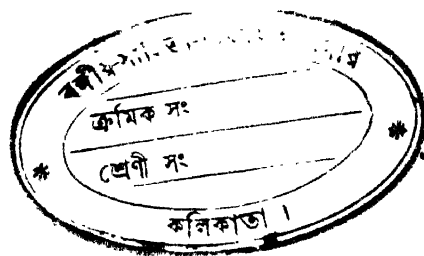 ক্রমিক সং
শ্রেণী সং
কলিকাতা ।